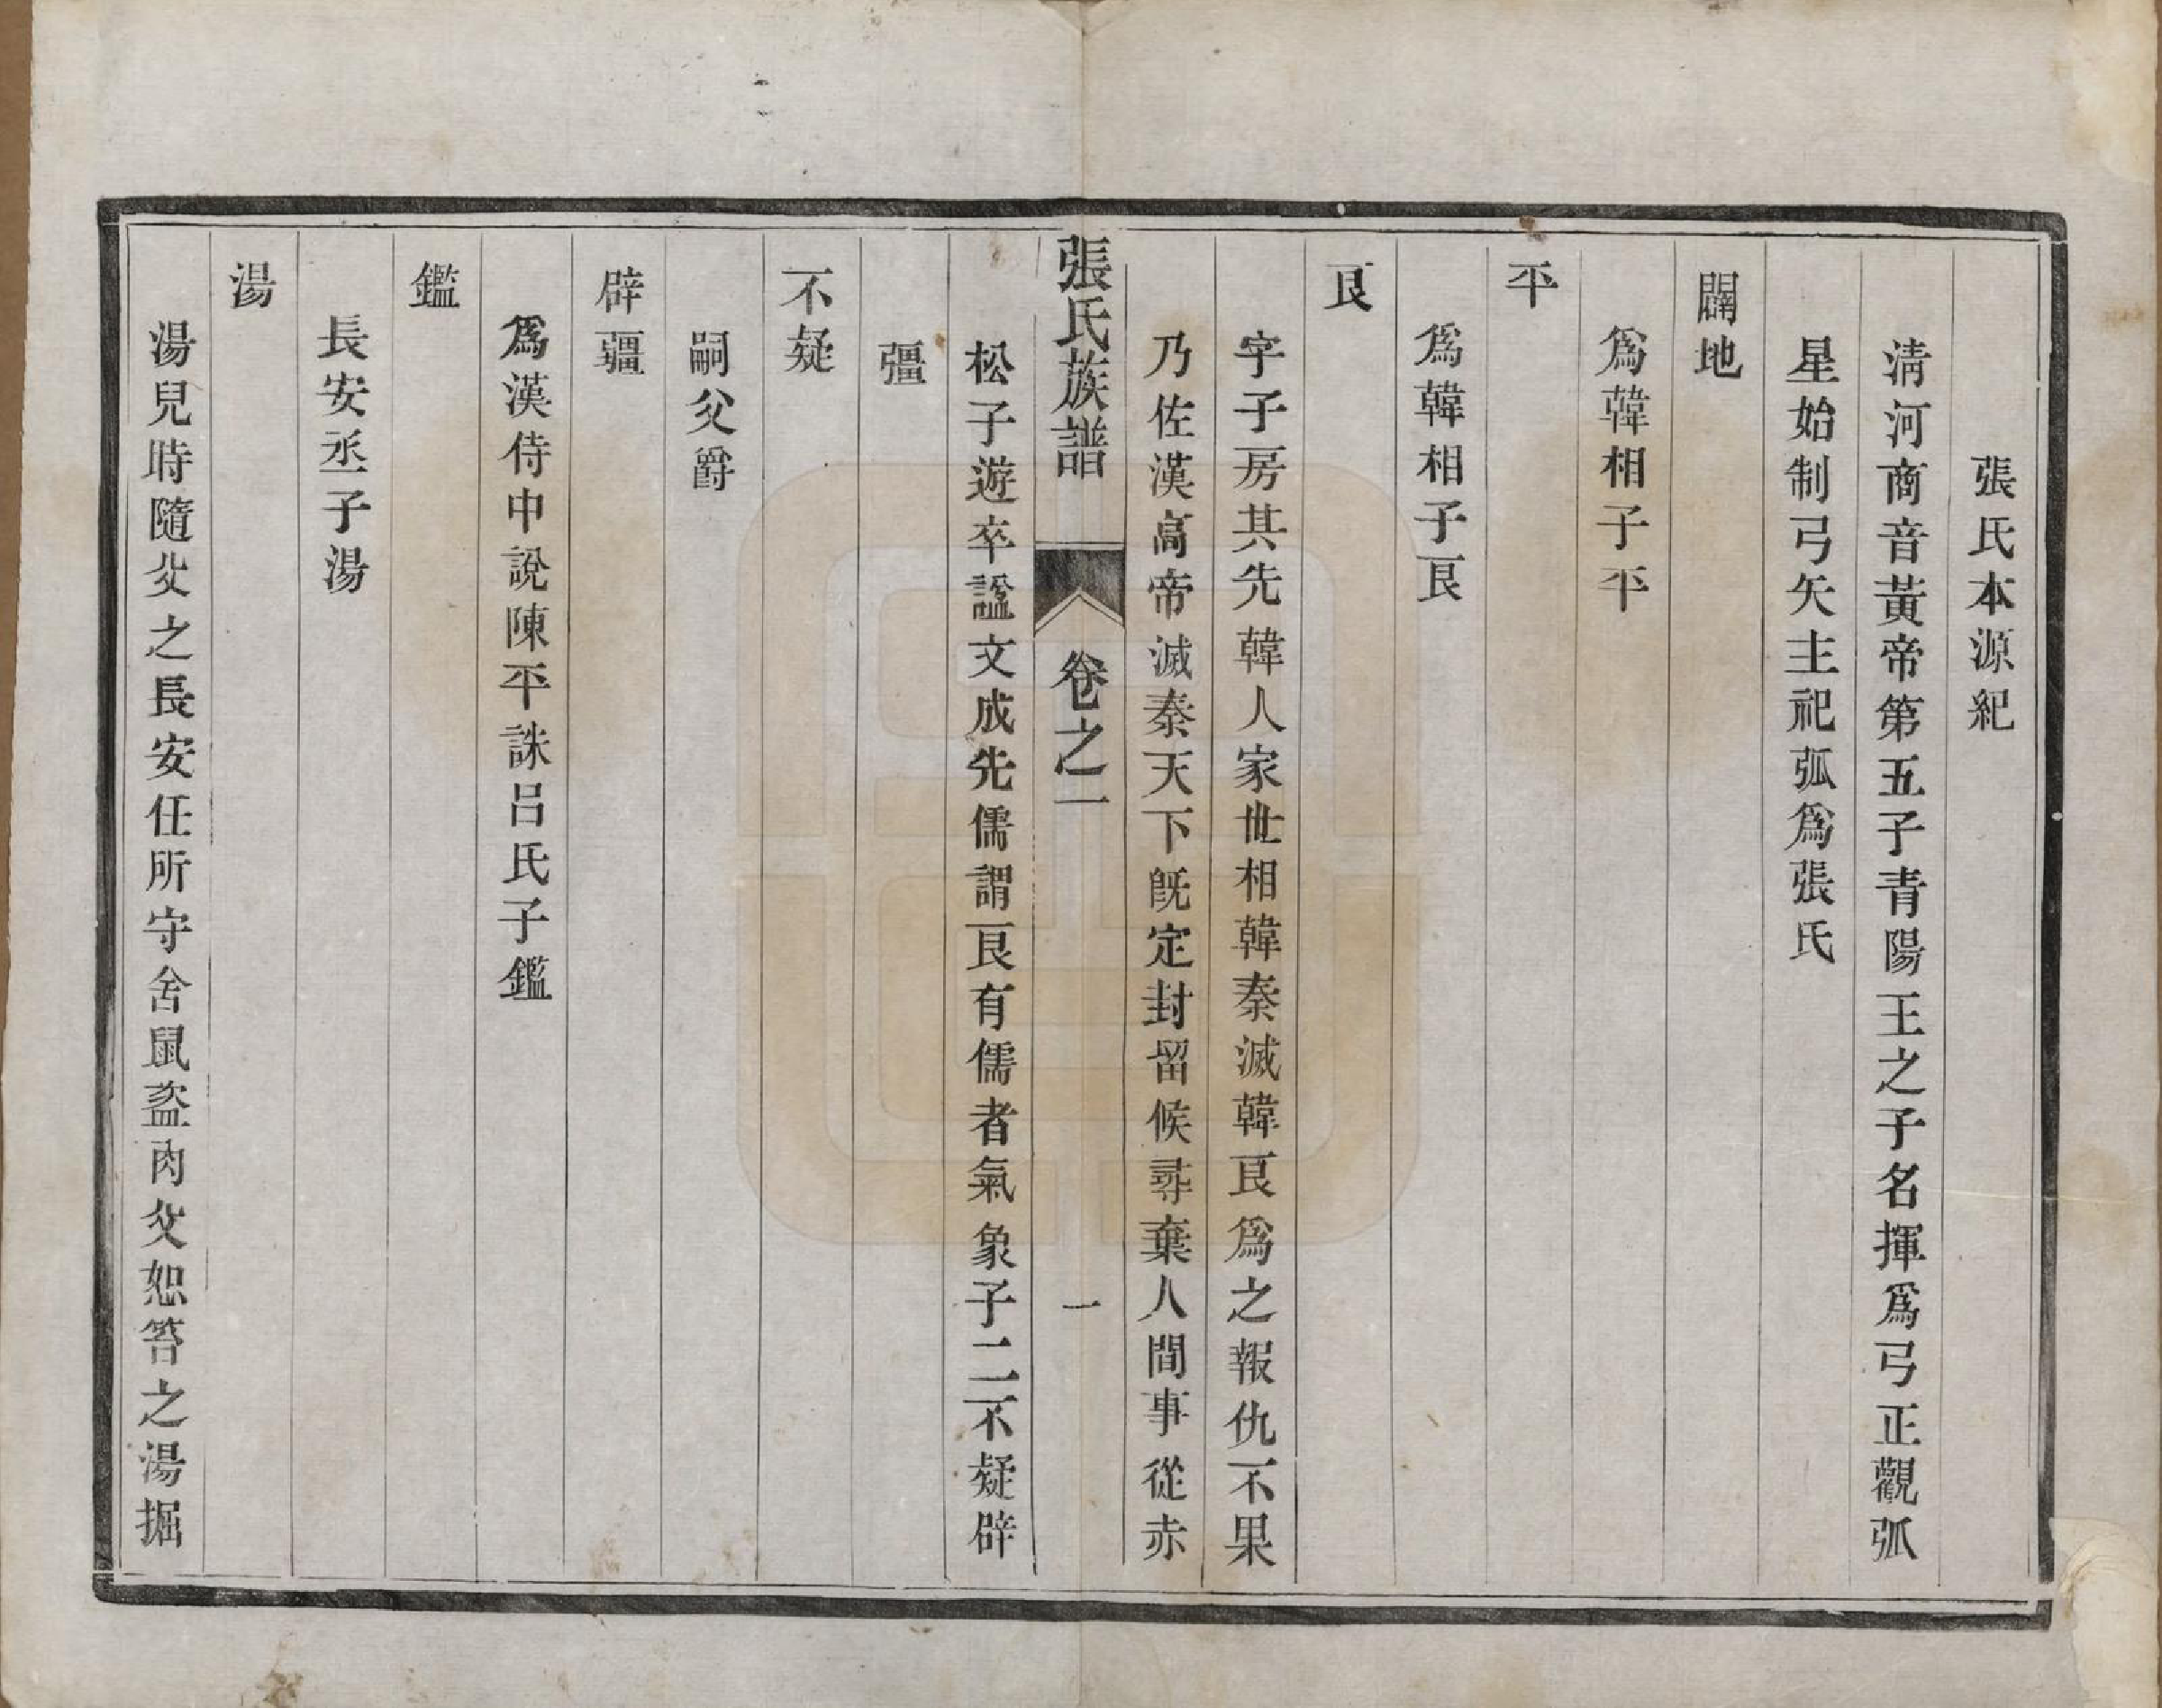 張氏本源紀
淸河商音黃帝第五子青陽王之子名揮爲弓正觀弧
星始制弓矢主祀弧爲張氏
闢地
爲韓相子平
平
爲韓相子良
良
字子房其先韓人家世相韓秦滅韓良爲之報仇不果
乃佐漢高帝滅秦天下旣定封留候尋棄人間事從赤
張氏族譜
卷之一
一
松子遊卒諡文成先儒謂良有儒者氣象子二不疑辟
彊
不疑
嗣父爵
辟疆
爲漢侍中說陳平誅呂氏子鑑
鑑
長安丞子湯
湯
湯兒時隨父之長安任所守舍鼠盜肉父恕笞之湯掘